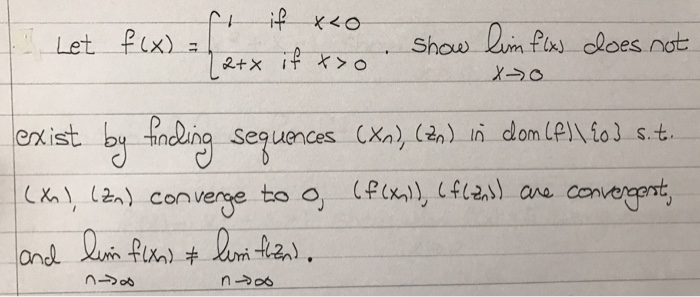 Let f(x) = { 1 if x<0
2+x if x>0 . Show lim f(x) does not
x→0
exist by finding sequences (xn), (zn) in dom(f)\{0} s.t.
(xn), (zn) converge to 0, (f(xn)), (f(zn)) are convergent,
and lim f(xn) ≠ lim f(zn).
n→∞ n→∞